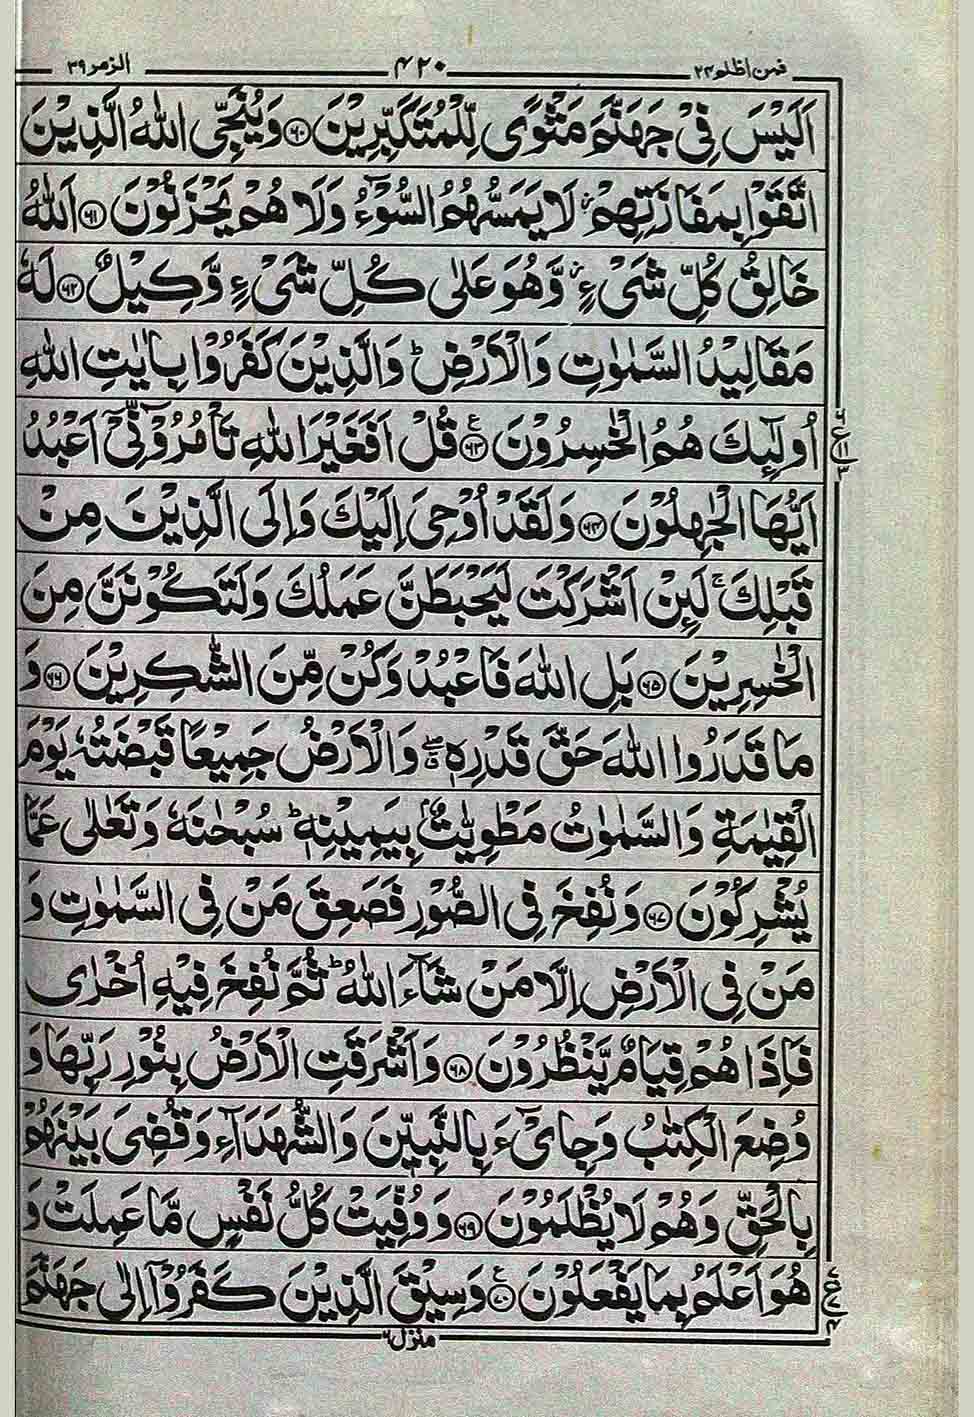 فمن اظلم ۲۴ ۴۲۰ الزمر ۳۹
اَلَيْسَ فِيْ جَهَنَّمَ مَثْوًى لِّلْمُتَكَبِّرِيْنَ ۶۰ وَيُنَجِّى اللّٰهُ الَّذِيْنَ
اتَّقَوْا بِمَفَازَتِهِمْ ز لَا يَمَسُّهُمُ السُّوْٓءُ وَلَا هُمْ يَحْزَنُوْنَ ۶۱ اَللّٰهُ
خَالِقُ كُلِّ شَىْءٍ ز وَّهُوَ عَلٰى كُلِّ شَىْءٍ وَّكِيْلٌ ۶۲ لَهٗ
مَقَالِيْدُ السَّمٰوٰتِ وَالْاَرْضِ ؕ وَالَّذِيْنَ كَفَرُوْا بِاٰيٰتِ اللّٰهِ
اُولٰٓئِكَ هُمُ الْخٰسِرُوْنَ ۶۳ ع قُلْ اَفَغَيْرَ اللّٰهِ تَاْمُرُوْٓنِّىْٓ اَعْبُدُ
اَيُّهَا الْجٰهِلُوْنَ ۶۴ وَلَقَدْ اُوْحِىَ اِلَيْكَ وَاِلَى الَّذِيْنَ مِنْ
قَبْلِكَ ۚ لَئِنْ اَشْرَكْتَ لَيَحْبَطَنَّ عَمَلُكَ وَلَتَكُوْنَنَّ مِنَ
الْخٰسِرِيْنَ ۶۵ بَلِ اللّٰهَ فَاعْبُدْ وَكُنْ مِّنَ الشّٰكِرِيْنَ ۶۶ وَ
مَا قَدَرُوا اللّٰهَ حَقَّ قَدْرِهٖ ۖ وَالْاَرْضُ جَمِيْعًا قَبْضَتُهٗ يَوْمَ
الْقِيٰمَةِ وَالسَّمٰوٰتُ مَطْوِيّٰتٌۢ بِيَمِيْنِهٖ ؕ سُبْحٰنَهٗ وَتَعٰلٰى عَمَّا
يُشْرِكُوْنَ ۶۷ وَنُفِخَ فِى الصُّوْرِ فَصَعِقَ مَنْ فِى السَّمٰوٰتِ وَ
مَنْ فِى الْاَرْضِ اِلَّا مَنْ شَآءَ اللّٰهُ ؕ ثُمَّ نُفِخَ فِيْهِ اُخْرٰى
فَاِذَا هُمْ قِيَامٌ يَّنْظُرُوْنَ ۶۸ وَاَشْرَقَتِ الْاَرْضُ بِنُوْرِ رَبِّهَا وَ
وُضِعَ الْكِتٰبُ وَجِاىْٓءَ بِالنَّبِيّٖنَ وَالشُّهَدَآءِ وَقُضِىَ بَيْنَهُمْ
بِالْحَقِّ وَهُمْ لَا يُظْلَمُوْنَ ۶۹ وَوُفِّيَتْ كُلُّ نَفْسٍ مَّا عَمِلَتْ وَ
هُوَ اَعْلَمُ بِمَا يَفْعَلُوْنَ ۷۰ ع وَسِيْقَ الَّذِيْنَ كَفَرُوْٓا اِلٰى جَهَنَّمَ
منزل ۶